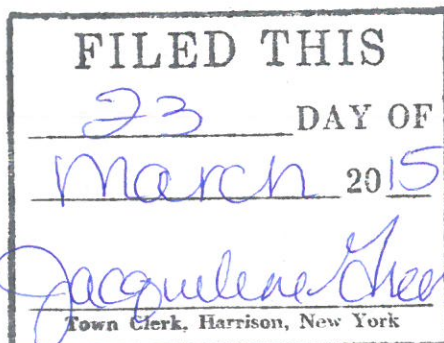 FILED THIS
23 DAY OF
March 2015
Jacqueline Greer
Town Clerk, Harrison, New York